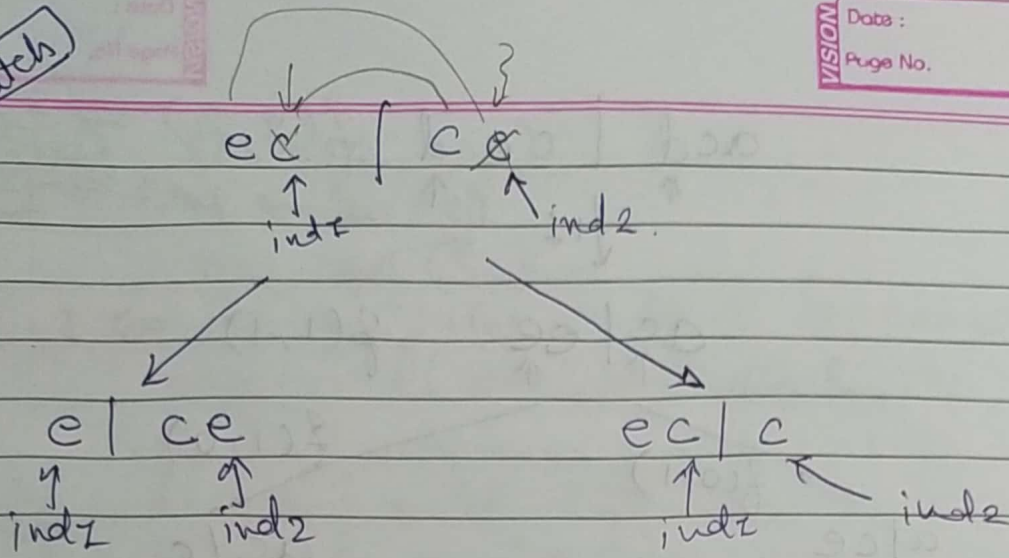 VISION
Date :
Page No.
ec | ce
ind1 ind2.
e | ce ec | c
ind1 ind2 ind1 ind2